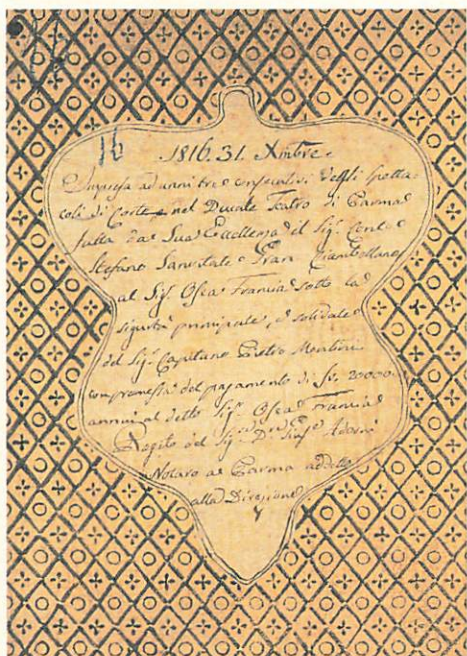 16
1816. 31. Xmbre.
Impresa ad anni tre consecutivi degli spetta-
coli di Corte nel Ducale Teatro di Parma
fatta da Sua Eccellenza il Sig.r Conte
Stefano Sanvitale Gran Ciambellano
al Sig.r Osea Francia sotto la
sigurtà principale, e solidale
del Sig.r Capitano Pietro Montini
compromessa del pagamento di fr. 20000
annui al detto Sig.r Osea Francia
Rogito del Sig.r D.r
Notaro di Parma addetto
alla Direzione